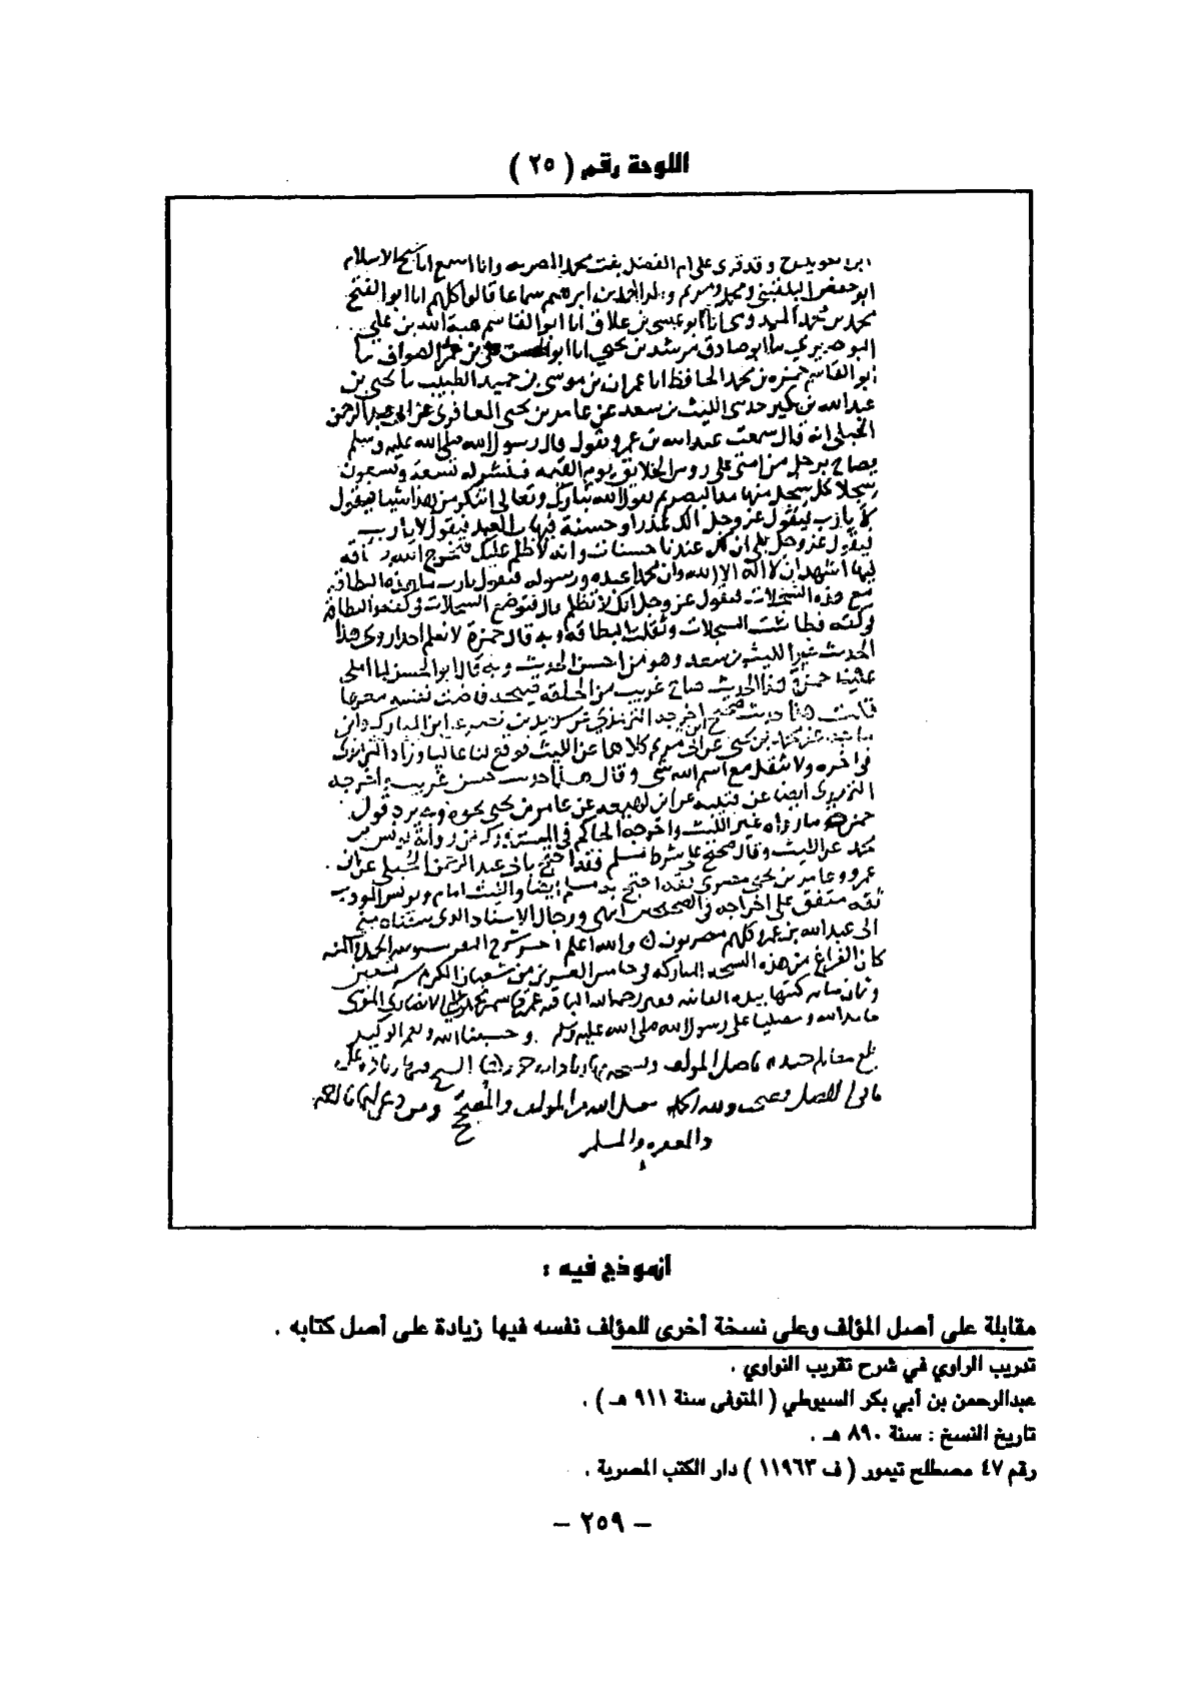 اللوحة رقم ( ٢٥ )
وقد قرئ على ام الفضل بنت محمد المصريه وانا اسمع انا شيخ الاسلام
ابو حفص البلقيني ومحمد ومريم ولدا احمد بن ابرهيم سماعا قالوا كلهم انا ابو الفتح
محمد بن محمد الميدومى انا ابو عيسى بن علاق انا ابو القاسم هبة الله بن علي
البوصيري نا ابو صادق مرشد بن يحيى انا ابو الحسن علي بن عمر الصواف نا
ابو القاسم حمزه بن محمد الحافظ انا عمران بن موسى بن حميد الطبيب نا يحيى بن
عبدالله بن بكير حدثنى الليث بن سعد عن عامر بن يحيى المعافرى عن ابى عبد الرحمن
الحبلى انه قال سمعت عبدالله بن عمرو يقول قال رسول الله صلى الله عليه وسلم
يصاح برجل من امتى على روس الخلايق يوم القيمه فينشر له تسعة وتسعون
سجلا كل سجل منها مد البصر ثم يقول الله تبارك وتعالى اتنكر من هذا شيا فيقول
لا يارب فيقول عز وجل الك عذر او حسنة فيهاب العبد فيقول لا يارب
فيقول عز وجل بلى ان لك عندنا حسنات وانه لا ظلم عليك فتخرج له بطاقه
فيها اشهد ان لا اله الا الله وان محمدا عبده ورسوله فيقول يارب ما هذه البطاقه
مع هذه السجلات فيقول عز وجل انك لا تظلم قال فتوضع السجلات فى كفه والبطاقه
فى كفه فطاشت السجلات وثقلت البطاقه وبه قال حمزة لا نعلم احدا روى هذا
الحديث غير الليث بن سعد وهو من احسن الحديث وبه قال ابو الحسن لما املى
علينا حمزة هذا الحديث صاح غريب من الحلقه صيحة فاضت نفسه معها
قلت هذا حديث صحيح اخرجه الترمذي عن سويد بن نصر عن ابن المبارك وابن
ماجه عن محمد بن يحيى عن ابن ابى مريم كلاهما عن الليث فوقع لنا عاليا وزاد الترمذى
فى اخره ولا يثقل مع اسم الله شى وقال هذا حديث حسن غريب واخرجه
الترمذى ايضا عن قتيبه عن ابن لهيعه عن عامر بن يحيى نحوه وبه يرد قول
حمزة ما رواه غير الليث واخرجه الحاكم فى المستدرك من رواية يونس بن
محمد عن الليث وقال صحيح على شرط مسلم فقد احتج بابى عبد الرحمن الحبلى عن ابن
عمرو وعامر بن يحيى مصرى ثقة احتج به مسلم ايضا والليث امام ويونس المودب
ثقه متفق على اخراجه فى الصحيحين انتهى ورجال الاسناد الذى سقناه منى
الى عبدالله بن عمرو كلهم مصريون والله اعلم
كان الفراغ من هذه النسخه المباركه فى خامس العشرين من شعبان المكرم سنه تسعين
وثمان مايه كتبها بيده الفانيه
حامدا لله ومصليا على رسول الله صلى الله عليه وسلم وحسبنا الله ونعم الوكيل
بلغ مقابله جيده باصل المولف
والمغفره والمسلمين
أنموذج فيه :
مقابلة على أصل المؤلف وعلى نسخة أخرى للمؤلف نفسه فيها زيادة على أصل كتابه .
تدريب الراوي في شرح تقريب النواوي .
عبدالرحمن بن أبي بكر السيوطي ( المتوفى سنة ٩١١ هـ ) .
تاريخ النسخ : سنة ٨٩٠ هـ .
رقم ٤٧ مصطلح تيمور ( ف ١١٩٦٣ ) دار الكتب المصرية .
– ٢٥٩ –